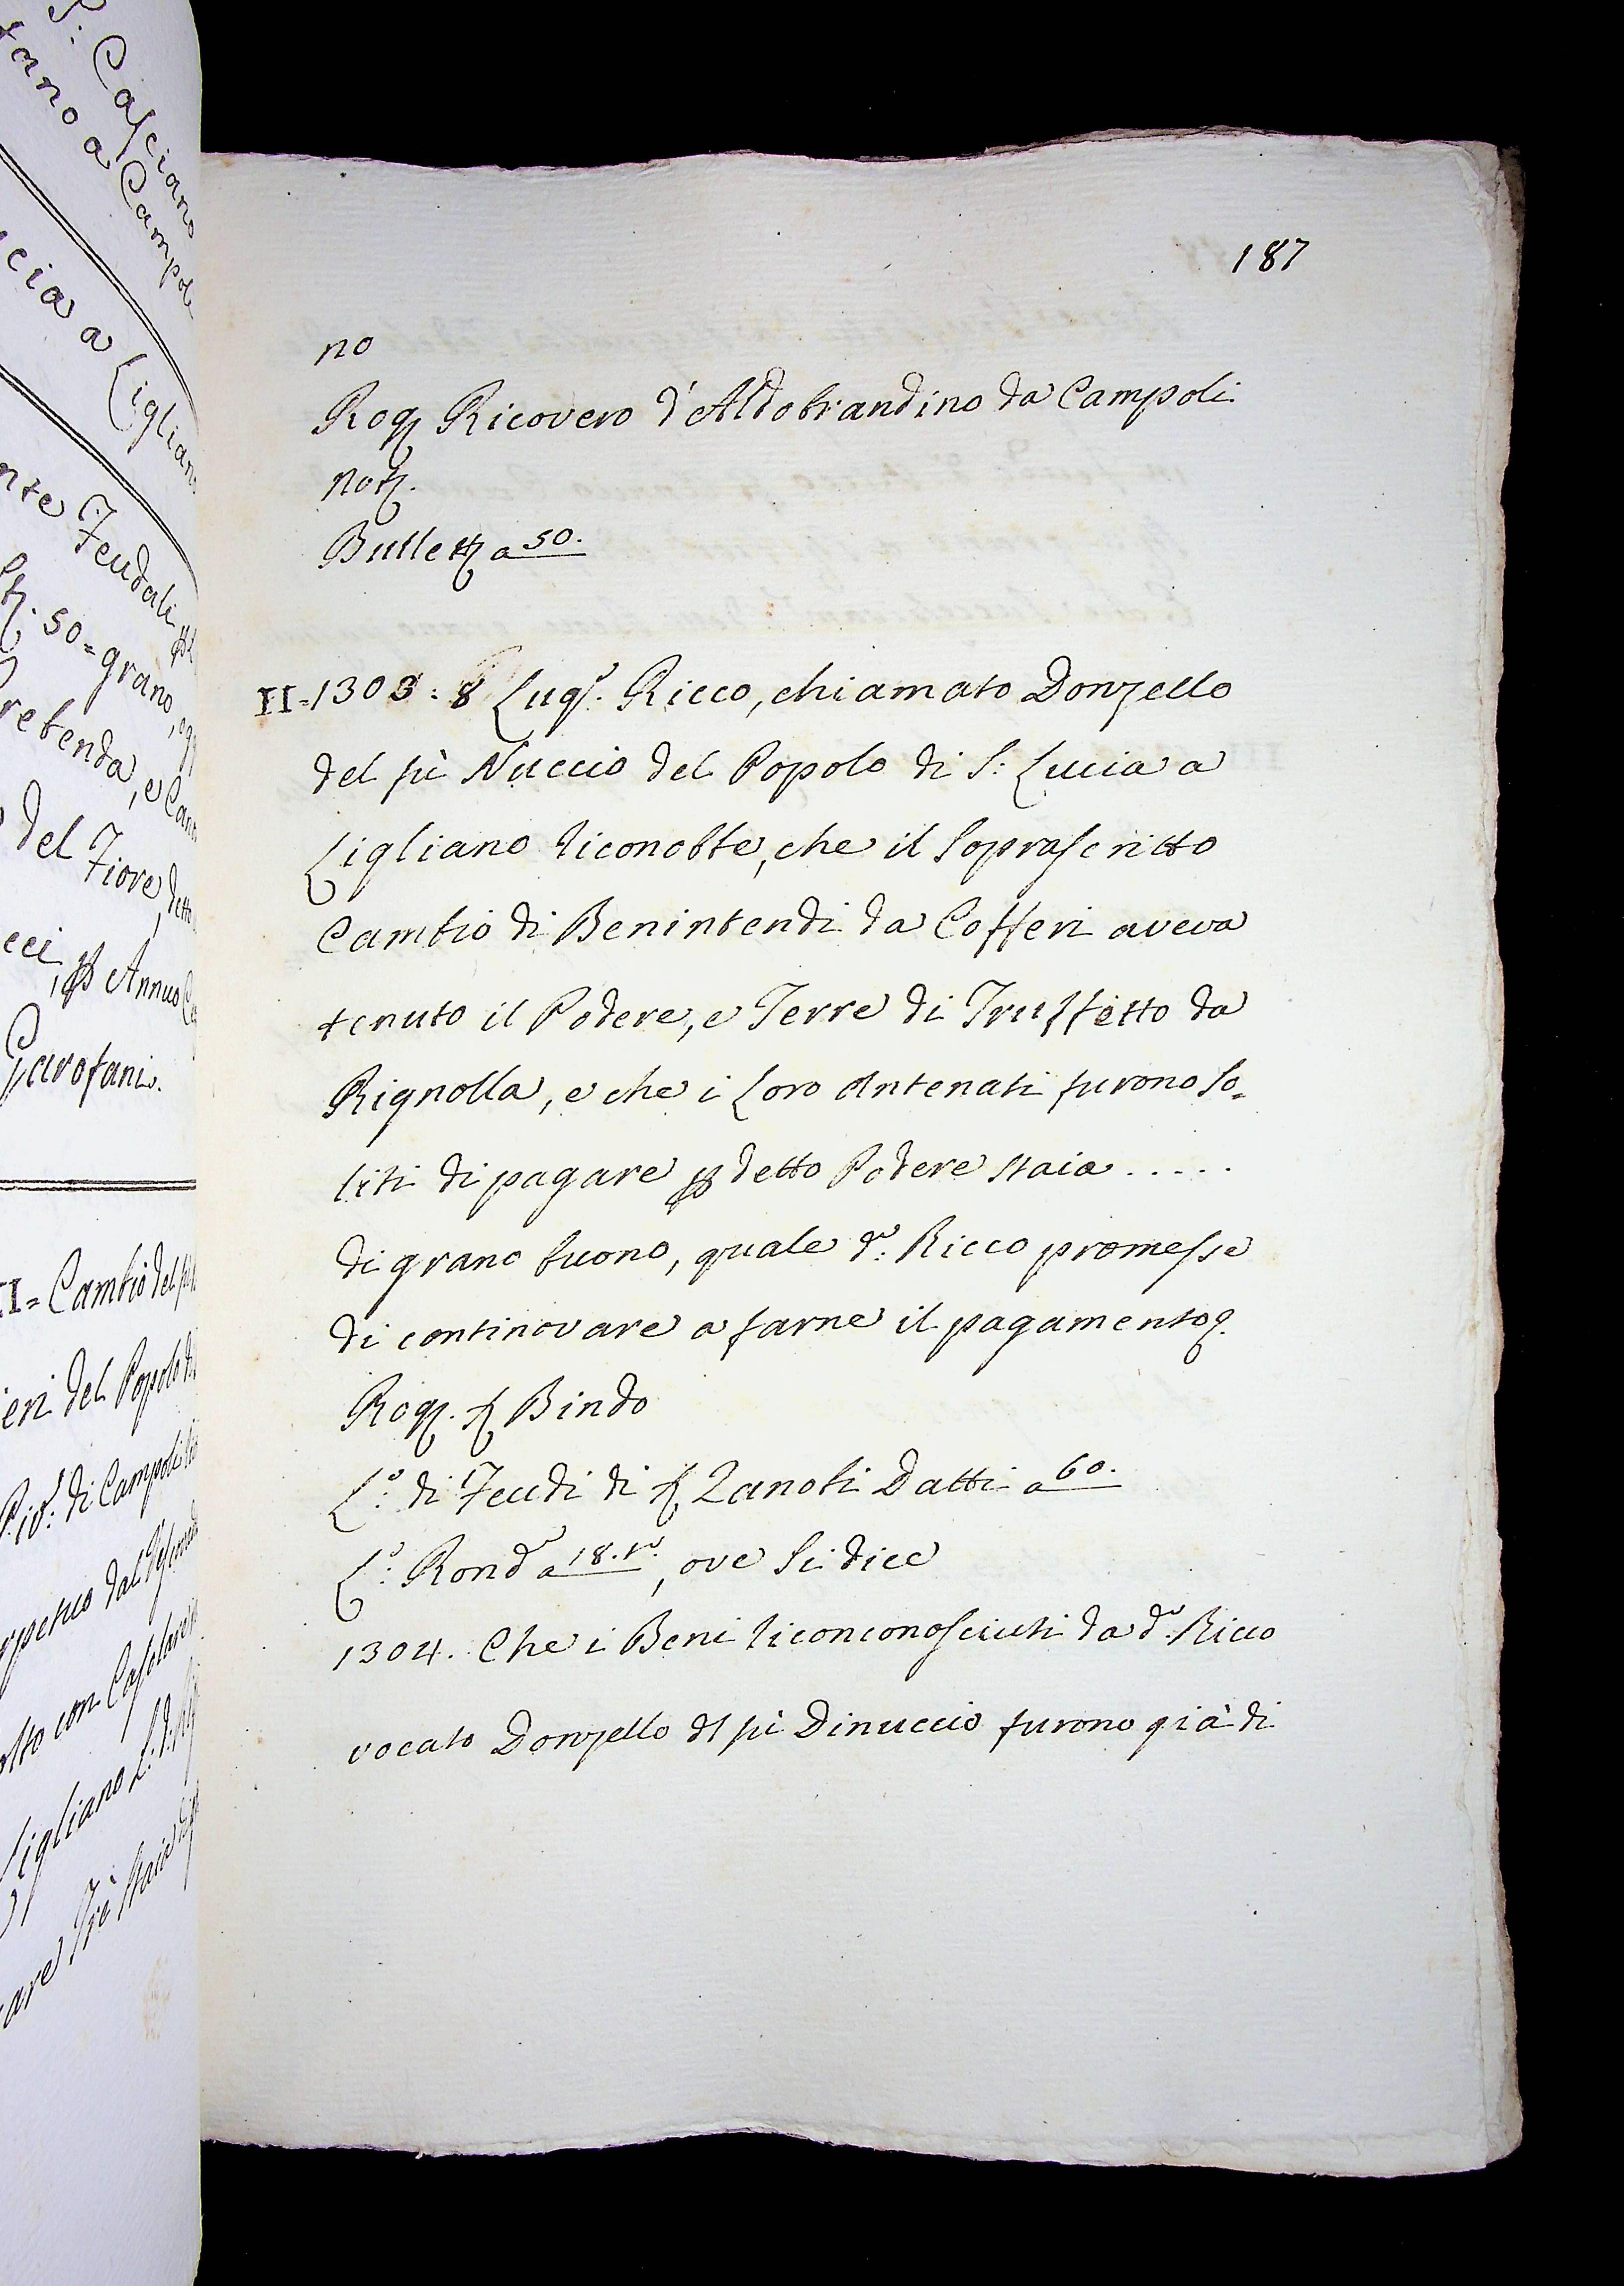 S: Casciano
tano a Campoli
cia a Ligliano
nte Feudali
50 = grano, ogg
rebenda, e Cano
del Fiore, detto
cci, p Annuo
Garofani.
II = Cambio del
eri del Popolo di
Piv: di Campoli
rpetuo dal
olto con Casolare
Ligliano
are Trè Staia
187
no
Rog. Ricovero d'Aldobrandino da Campoli
not.
Bullett. a 50.
II = 1303: 8 Lug. Ricco, chiamato Donzello
del fù Nuccio del Popolo di S: Lucia a
Ligliano riconobbe, che il Soprascritto
Cambio di Benintendi da Cofferi aveva
tenuto il Podere, e Terre di Truffetto da
Rignolla, e che i Loro Antenati furono so=
liti di pagare p detto Podere staia . . . . .
di grano buono, quale d.o: Ricco promesse
di continovare a farne il pagamento.
Rog. S. Bindo
L.o: di Feudi di S. Zanobi Datti a 60.
L.o: Rond.o a 18. t.o, ove si dice
1304. Che i Beni riconconosciuti da d.o Ricco
vocato Donzello dl fù Dinuccio furono già di